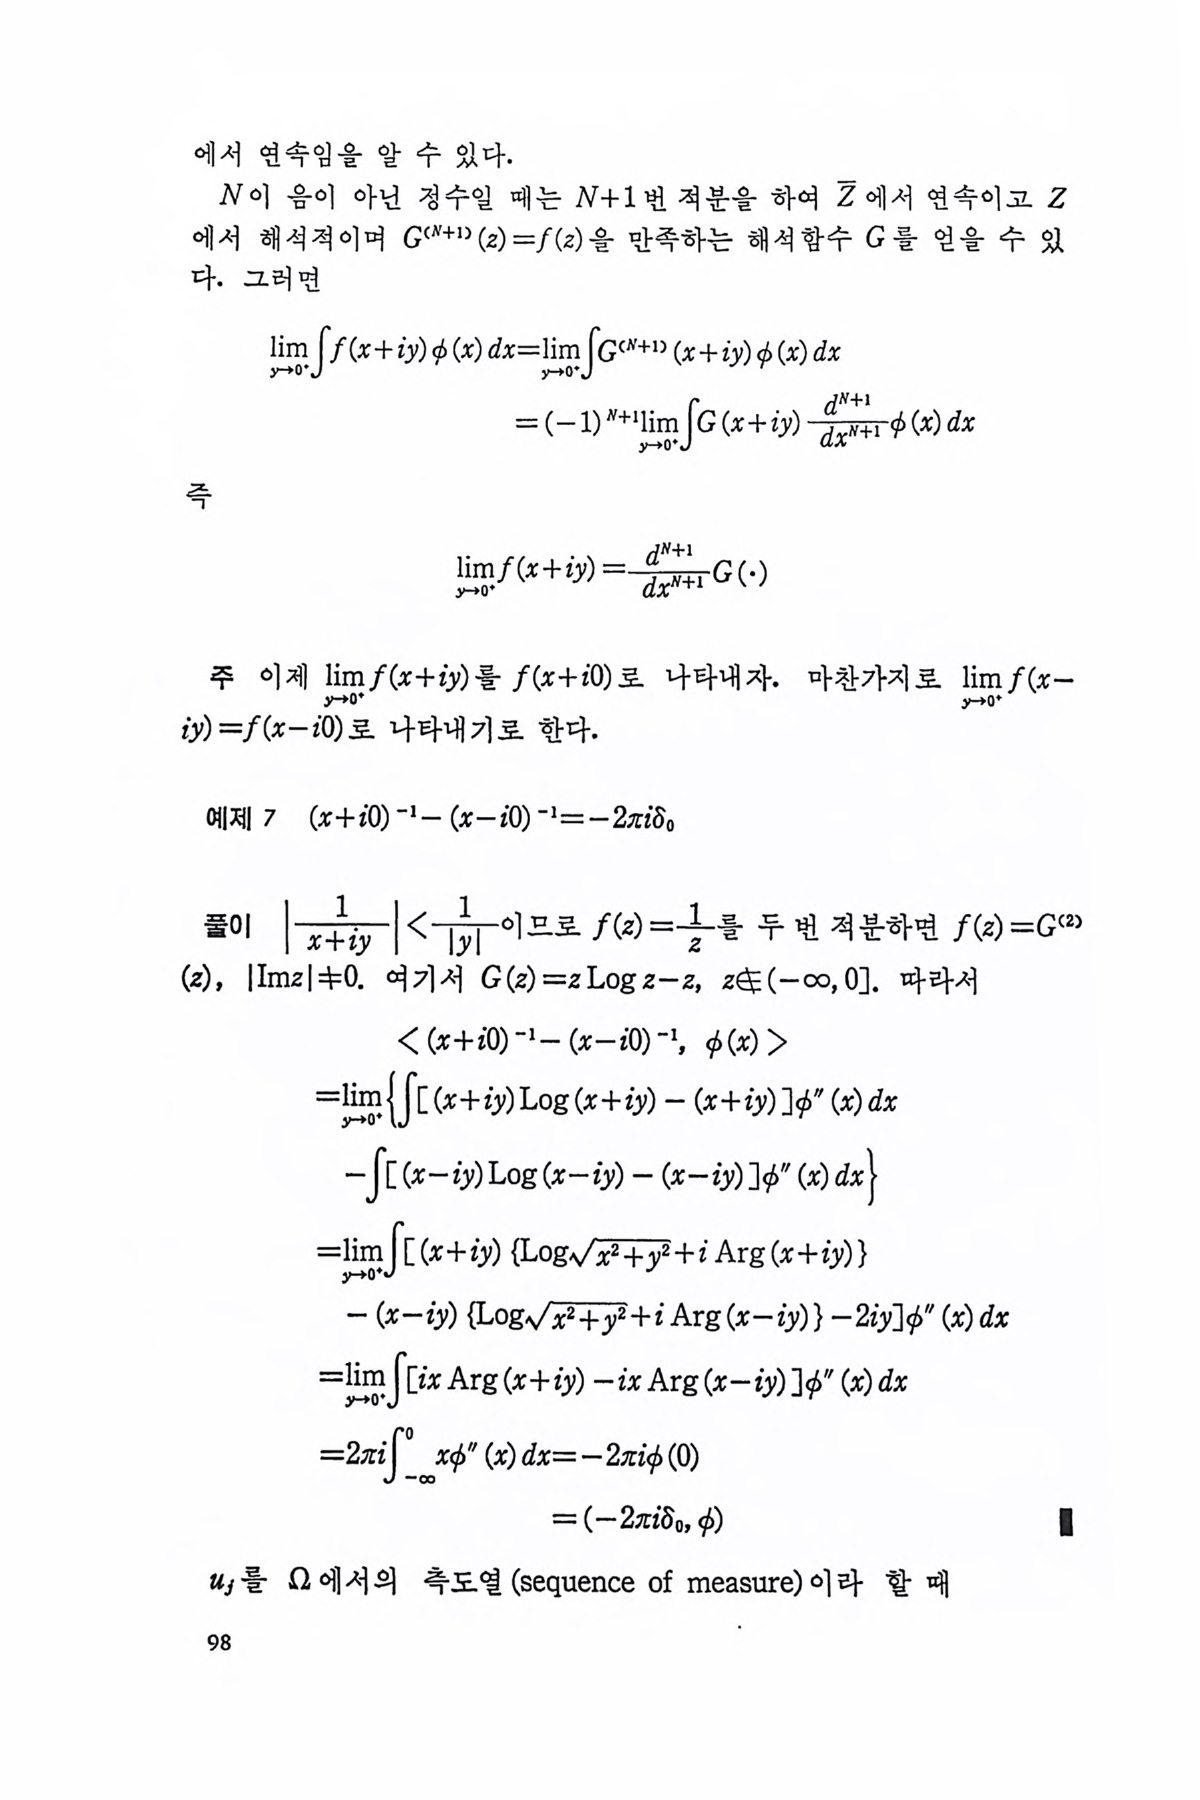 에서 연속임을 알 수 있다.
N이 음이 아닌 정수일 때는 N+1번 적분을 하여 Z̅에서 연속이고 Z
에서 해석적이며 G⁽ᴺ⁺¹⁾(z)=f(z)을 만족하는 해석함수 G를 얻을 수 있
다. 그러면
lim_{y→0⁺}∫f(x+iy)ϕ(x)dx=lim_{y→0⁺}∫G⁽ᴺ⁺¹⁾(x+iy)ϕ(x)dx
=(-1)^{N+1}lim_{y→0⁺}∫G(x+iy) d^{N+1}/dx^{N+1} ϕ(x)dx
즉
lim_{y→0⁺}f(x+iy)= d^{N+1}/dx^{N+1} G(·)
주 이제 lim_{y→0⁺}f(x+iy)를 f(x+i0)로 나타내자. 마찬가지로 lim_{y→0⁺}f(x-
iy)=f(x-i0)로 나타내기로 한다.
예제 7 (x+i0)⁻¹-(x-i0)⁻¹=-2πiδ₀
풀이 |1/(x+iy)|<1/|y|이므로 f(z)=1/z를 두 번 적분하면 f(z)=G⁽²⁾
(z), |Imz|≠0. 여기서 G(z)=z Log z-z, z∉(-∞,0]. 따라서
<(x+i0)⁻¹-(x-i0)⁻¹, ϕ(x)>
=lim_{y→0⁺}{∫[(x+iy)Log(x+iy)-(x+iy)]ϕ″(x)dx
-∫[(x-iy)Log(x-iy)-(x-iy)]ϕ″(x)dx}
=lim_{y→0⁺}∫[(x+iy){Log√(x²+y²)+i Arg(x+iy)}
-(x-iy){Log√(x²+y²)+i Arg(x-iy)}-2iy]ϕ″(x)dx
=lim_{y→0⁺}∫[ix Arg(x+iy)-ix Arg(x-iy)]ϕ″(x)dx
=2πi∫_{-∞}^{0}xϕ″(x)dx=-2πiϕ(0)
=(-2πiδ₀, ϕ) ▮
u_j를 Ω에서의 측도열(sequence of measure)이라 할 때
98